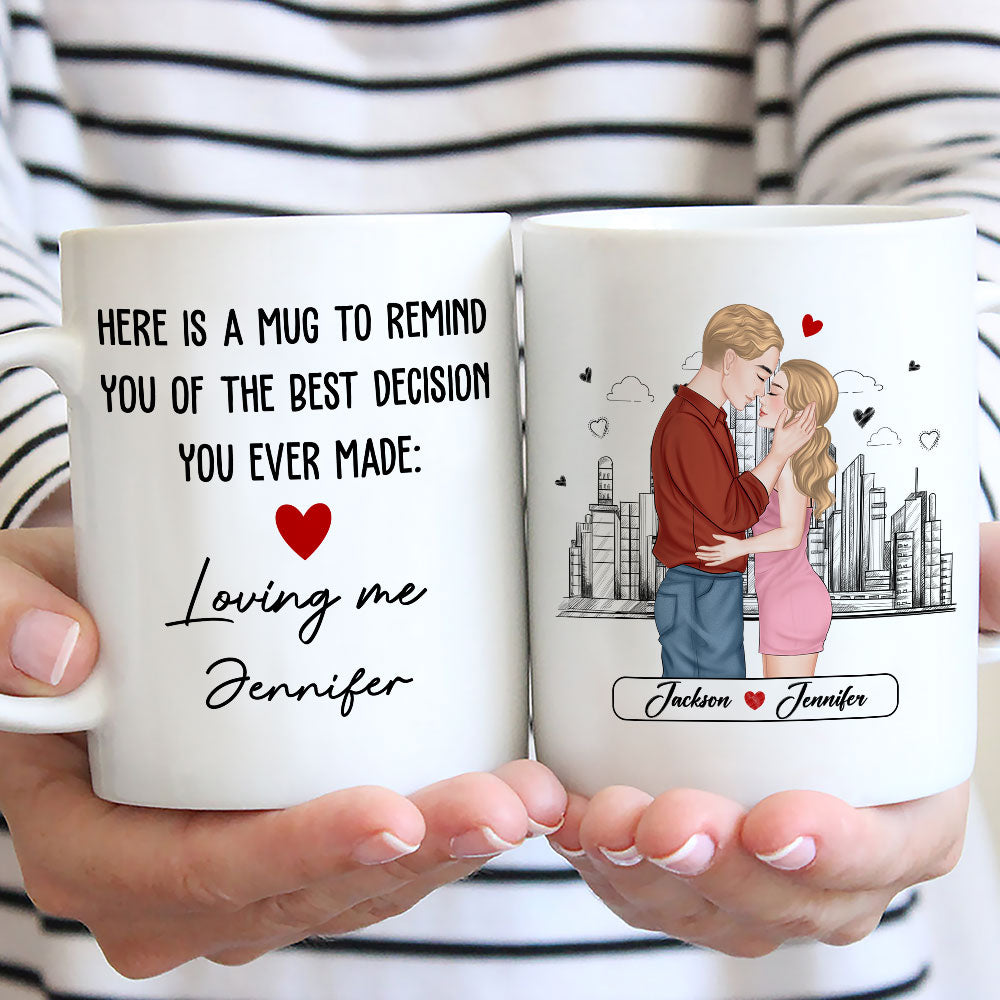 HERE IS A MUG TO REMIND
YOU OF THE BEST DECISION
YOU EVER MADE:
Loving me
Jennifer
Jackson Jennifer